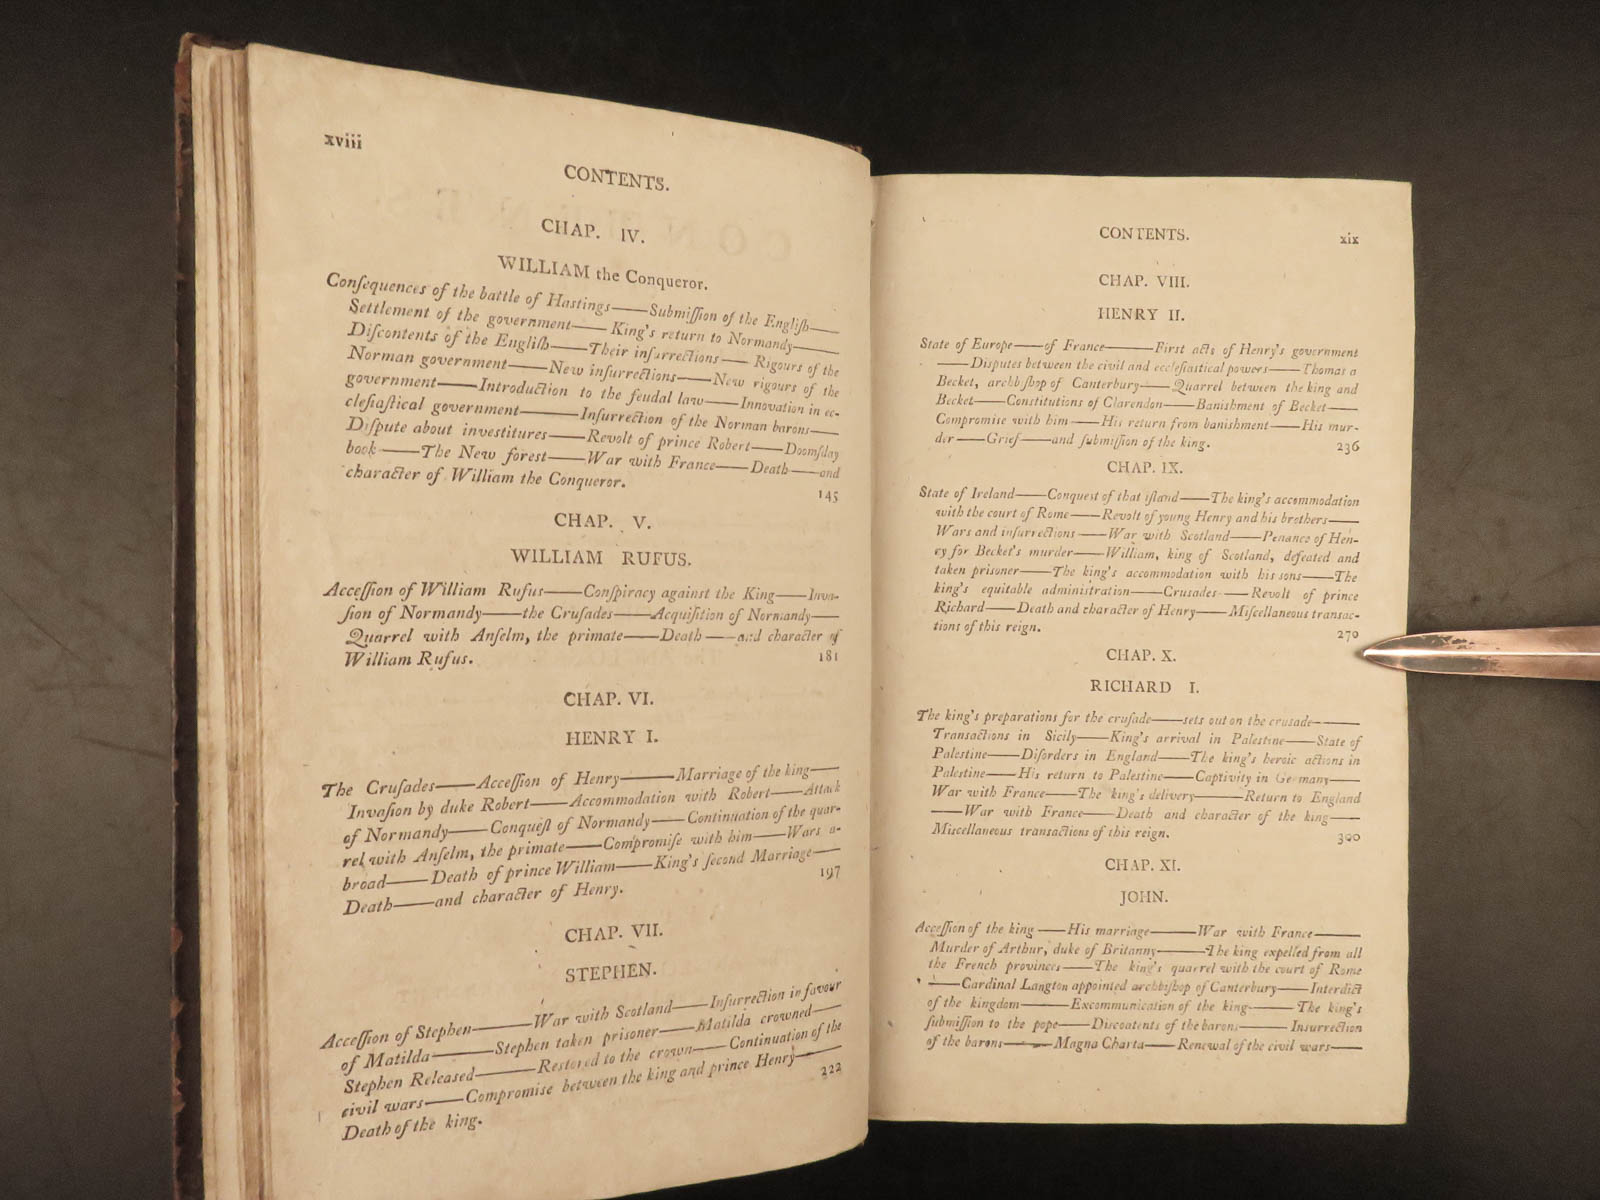 xviii
CONTENTS.
CHAP. IV.
WILLIAM the Conqueror.
Conſequences of the battle of Haſtings——Submiſſion of the Engliſh——
Settlement of the government——King's return to Normandy——
Diſcontents of the Engliſh——Their inſurrections——Rigours of the
Norman government——New inſurrections——New rigours of the
government——Introduction to the feudal law——Innovation in ec-
cleſiaſtical government——Inſurrection of the Norman barons——
Diſpute about inveſtitures——Revolt of prince Robert——Doomſday
book——The New foreſt——War with France——Death——and
character of William the Conqueror. 145
CHAP. V.
WILLIAM RUFUS.
Acceſſion of William Rufus——Conſpiracy againſt the King——Inva-
ſion of Normandy——the Cruſades——Acquiſition of Normandy——
Quarrel with Anſelm, the primate——Death——and character of
William Rufus. 181
CHAP. VI.
HENRY I.
The Cruſades——Acceſſion of Henry——Marriage of the king——
Invaſion by duke Robert——Accommodation with Robert——Attack
of Normandy——Conqueſt of Normandy——Continuation of the quar-
rel with Anſelm, the primate——Compromiſe with him——Wars a-
broad——Death of prince William——King's ſecond Marriage——
Death——and character of Henry. 197
CHAP. VII.
STEPHEN.
Acceſſion of Stephen——War with Scotland——Inſurrection in favour
of Matilda——Stephen taken priſoner——Matilda crowned——
Stephen Releaſed——Reſtored to the crown——Continuation of the
civil wars——Compromiſe between the king and prince Henry——
Death of the king. 222
CONTENTS. xix
CHAP. VIII.
HENRY II.
State of Europe——of France——Firſt acts of Henry's government
——Diſputes between the civil and eccleſiaſtical powers——Thomas a
Becket, archbiſhop of Canterbury——Quarrel between the king and
Becket——Conſtitutions of Clarendon——Baniſhment of Becket——
Compromiſe with him——His return from baniſhment——His mur-
der——Grief——and ſubmiſſion of the king. 236
CHAP. IX.
State of Ireland——Conqueſt of that iſland——The king's accommodation
with the court of Rome——Revolt of young Henry and his brothers——
Wars and inſurrections——War with Scotland——Penance of Hen-
ry for Becket's murder——William, king of Scotland, defeated and
taken priſoner——The king's accommodation with his sons——The
king's equitable adminiſtration——Cruſades——Revolt of prince
Richard——Death and character of Henry——Miſcellaneous transac-
tions of this reign. 270
CHAP. X.
RICHARD I.
The king's preparations for the cruſade——sets out on the crusade——
Transactions in Sicily——King's arrival in Paleſtine——State of
Paleſtine——Diſorders in England——The king's heroic actions in
Paleſtine——His return to Paleſtine——Captivity in Germany——
War with France——The king's delivery——Return to England
——War with France——Death and character of the king——
Miſcellaneous transactions of this reign. 300
CHAP. XI.
JOHN.
Acceſſion of the king——His marriage——War with France——
Murder of Arthur, duke of Britanny——The king expelled from all
the French provinces——The king's quarrel with the court of Rome
——Cardinal Langton appointed archbiſhop of Canterbury——Interdict
of the kingdom——Excommunication of the king——The king's
ſubmiſſion to the pope——Discontents of the barons——Insurrection
of the barons——Magna Charta——Renewal of the civil wars——